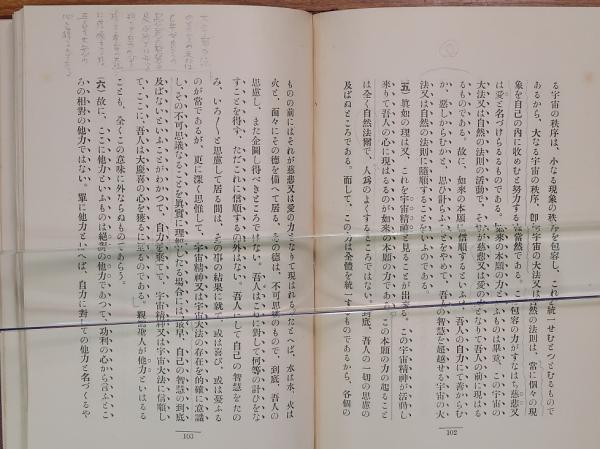 る宇宙の秩序は、小なる現象の秩序を包容し、これを統一せむとつとむるもので
あるから、大なる宇宙の秩序、即ち宇宙の大法又は自然の法則は、常に個々の現
象を自己の内に收めむと努力するは當然である。この包容の力がすなはち慈悲又
は愛と名づけらるるものである。如來の本願の力といふものは畢竟、この宇宙の
大法又は自然の法則の活動で、それが慈悲又は愛の力となりて吾人の前に現はる
るものである。故に、如來の本願に信順するといふは、吾人の自力にて善からむ
か、惡しからむかと、思ひ計らふことをやめて、吾人の智慧を超越せる宇宙の大
法又は自然の法則に隨順することをいふのである。
(五) 眞如の理は又、これを宇宙精神と見ることが出來る。この宇宙精神が活動し
來りて吾人の心に現はるるのが如來の本願の力である。この本願の力の起ること
は全く自然法爾で、人爲のよくするところではない。到底、吾人の一切の思慮の
及ばぬところである。而して、この力は全體を統一するものであるから、各個の
102
ものの前にはそれが慈悲又は愛の力となりて現はれる。たとへば、水は水、火は
火と、面々にその德を備へて居る。その德は、不可思議のもので、到底、吾人の
思慮し、また企圖し得べきところでない。吾人はこれに對して何等の計ひをな
すことを得ず、ただこれに信順するの外はない。吾人にして自己の智慧をたの
み、いろ〱と思慮して居る間は、その事の結果に就て、或は喜び、或は憂ふる
のが常であるが、更に深く思惟して、宇宙精神又は宇宙大法の存在を的確に意識
し、その不可思議なることを眞實に理解したる場合には、最早、自己の智慧の到底
及ばないといふことがわかつて、自力を棄てて、宇宙精神又は宇宙大法に信順し
て、ここに、吾人は大慶喜の心を獲るに至るのである。親鸞聖人が他力といはるる
ことも、全くこの意味に外ならぬものであらう。
(六) 故に、ここに他力といふものは絕對の他力であつて、功利の心から言ふとこ
ろの相對の他力ではない。單に他力といへば、自力に對しての他力と名づくるや
103